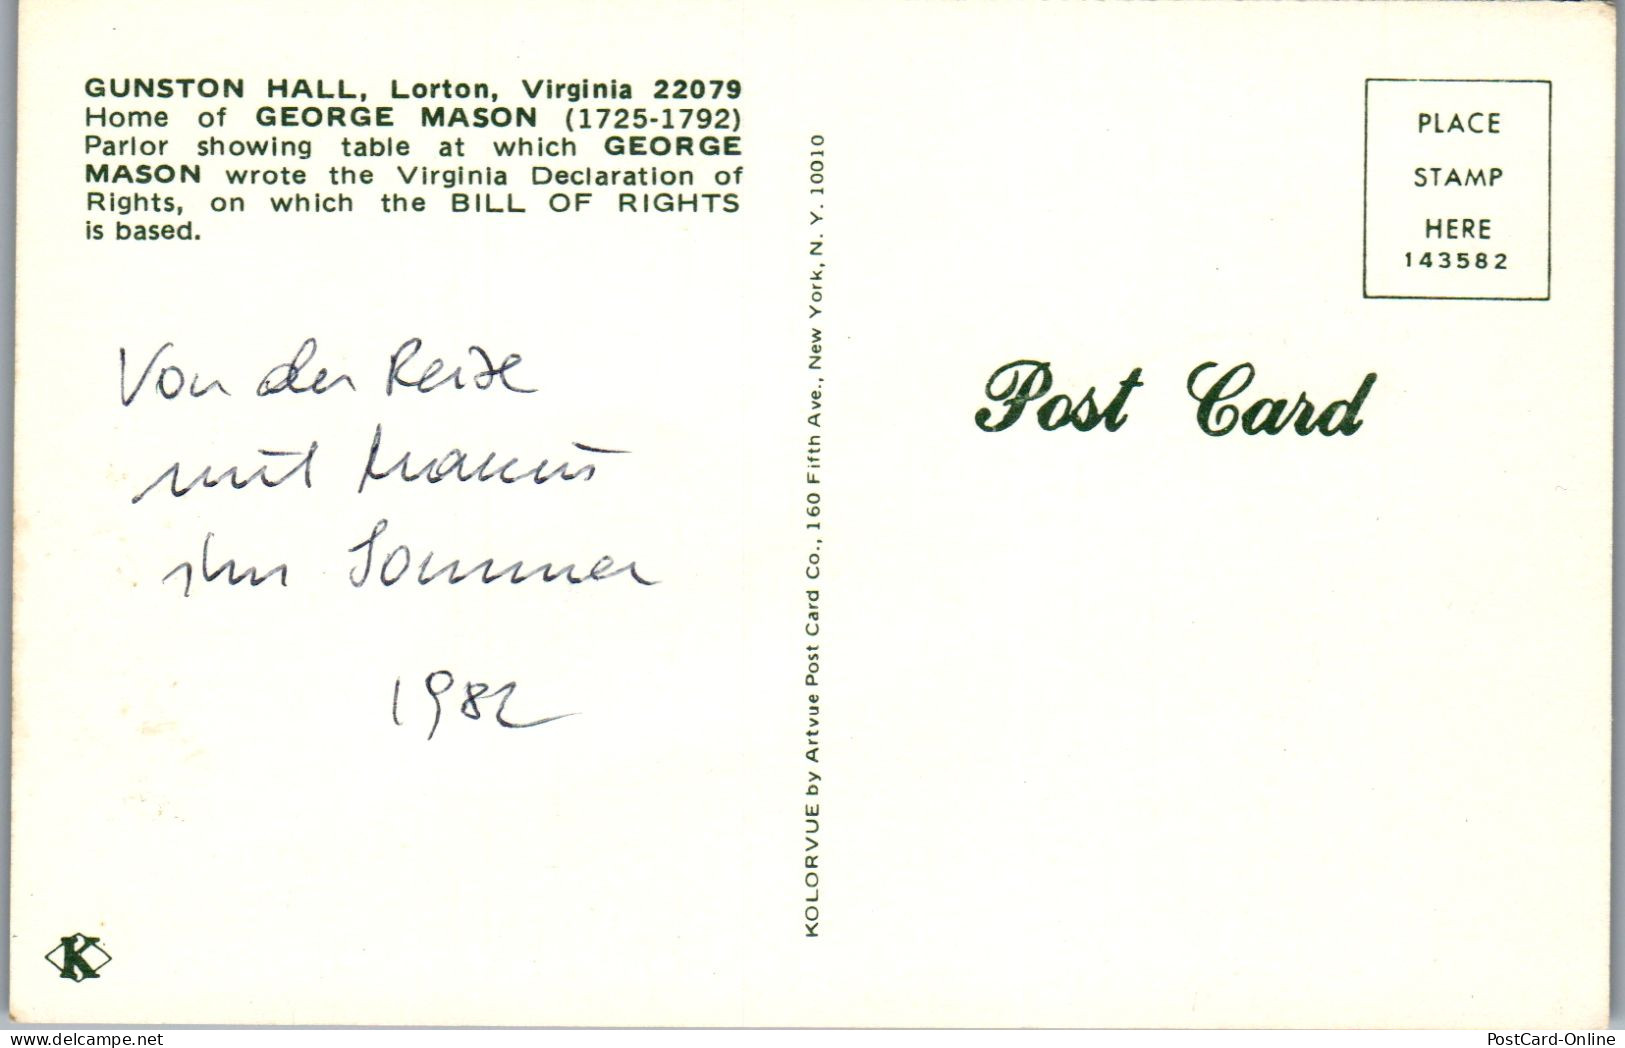 GUNSTON HALL, Lorton, Virginia 22079
Home of GEORGE MASON (1725-1792)
Parlor showing table at which GEORGE
MASON wrote the Virginia Declaration of
Rights, on which the BILL OF RIGHTS
is based.
Von der Reise
mit Markus
im Sommer
1982
K
KOLORVUE by Artvue Post Card Co., 160 Fifth Ave., New York, N. Y. 10010
PLACE
STAMP
HERE
143582
Post Card
delcampe.net
PostCard-Online